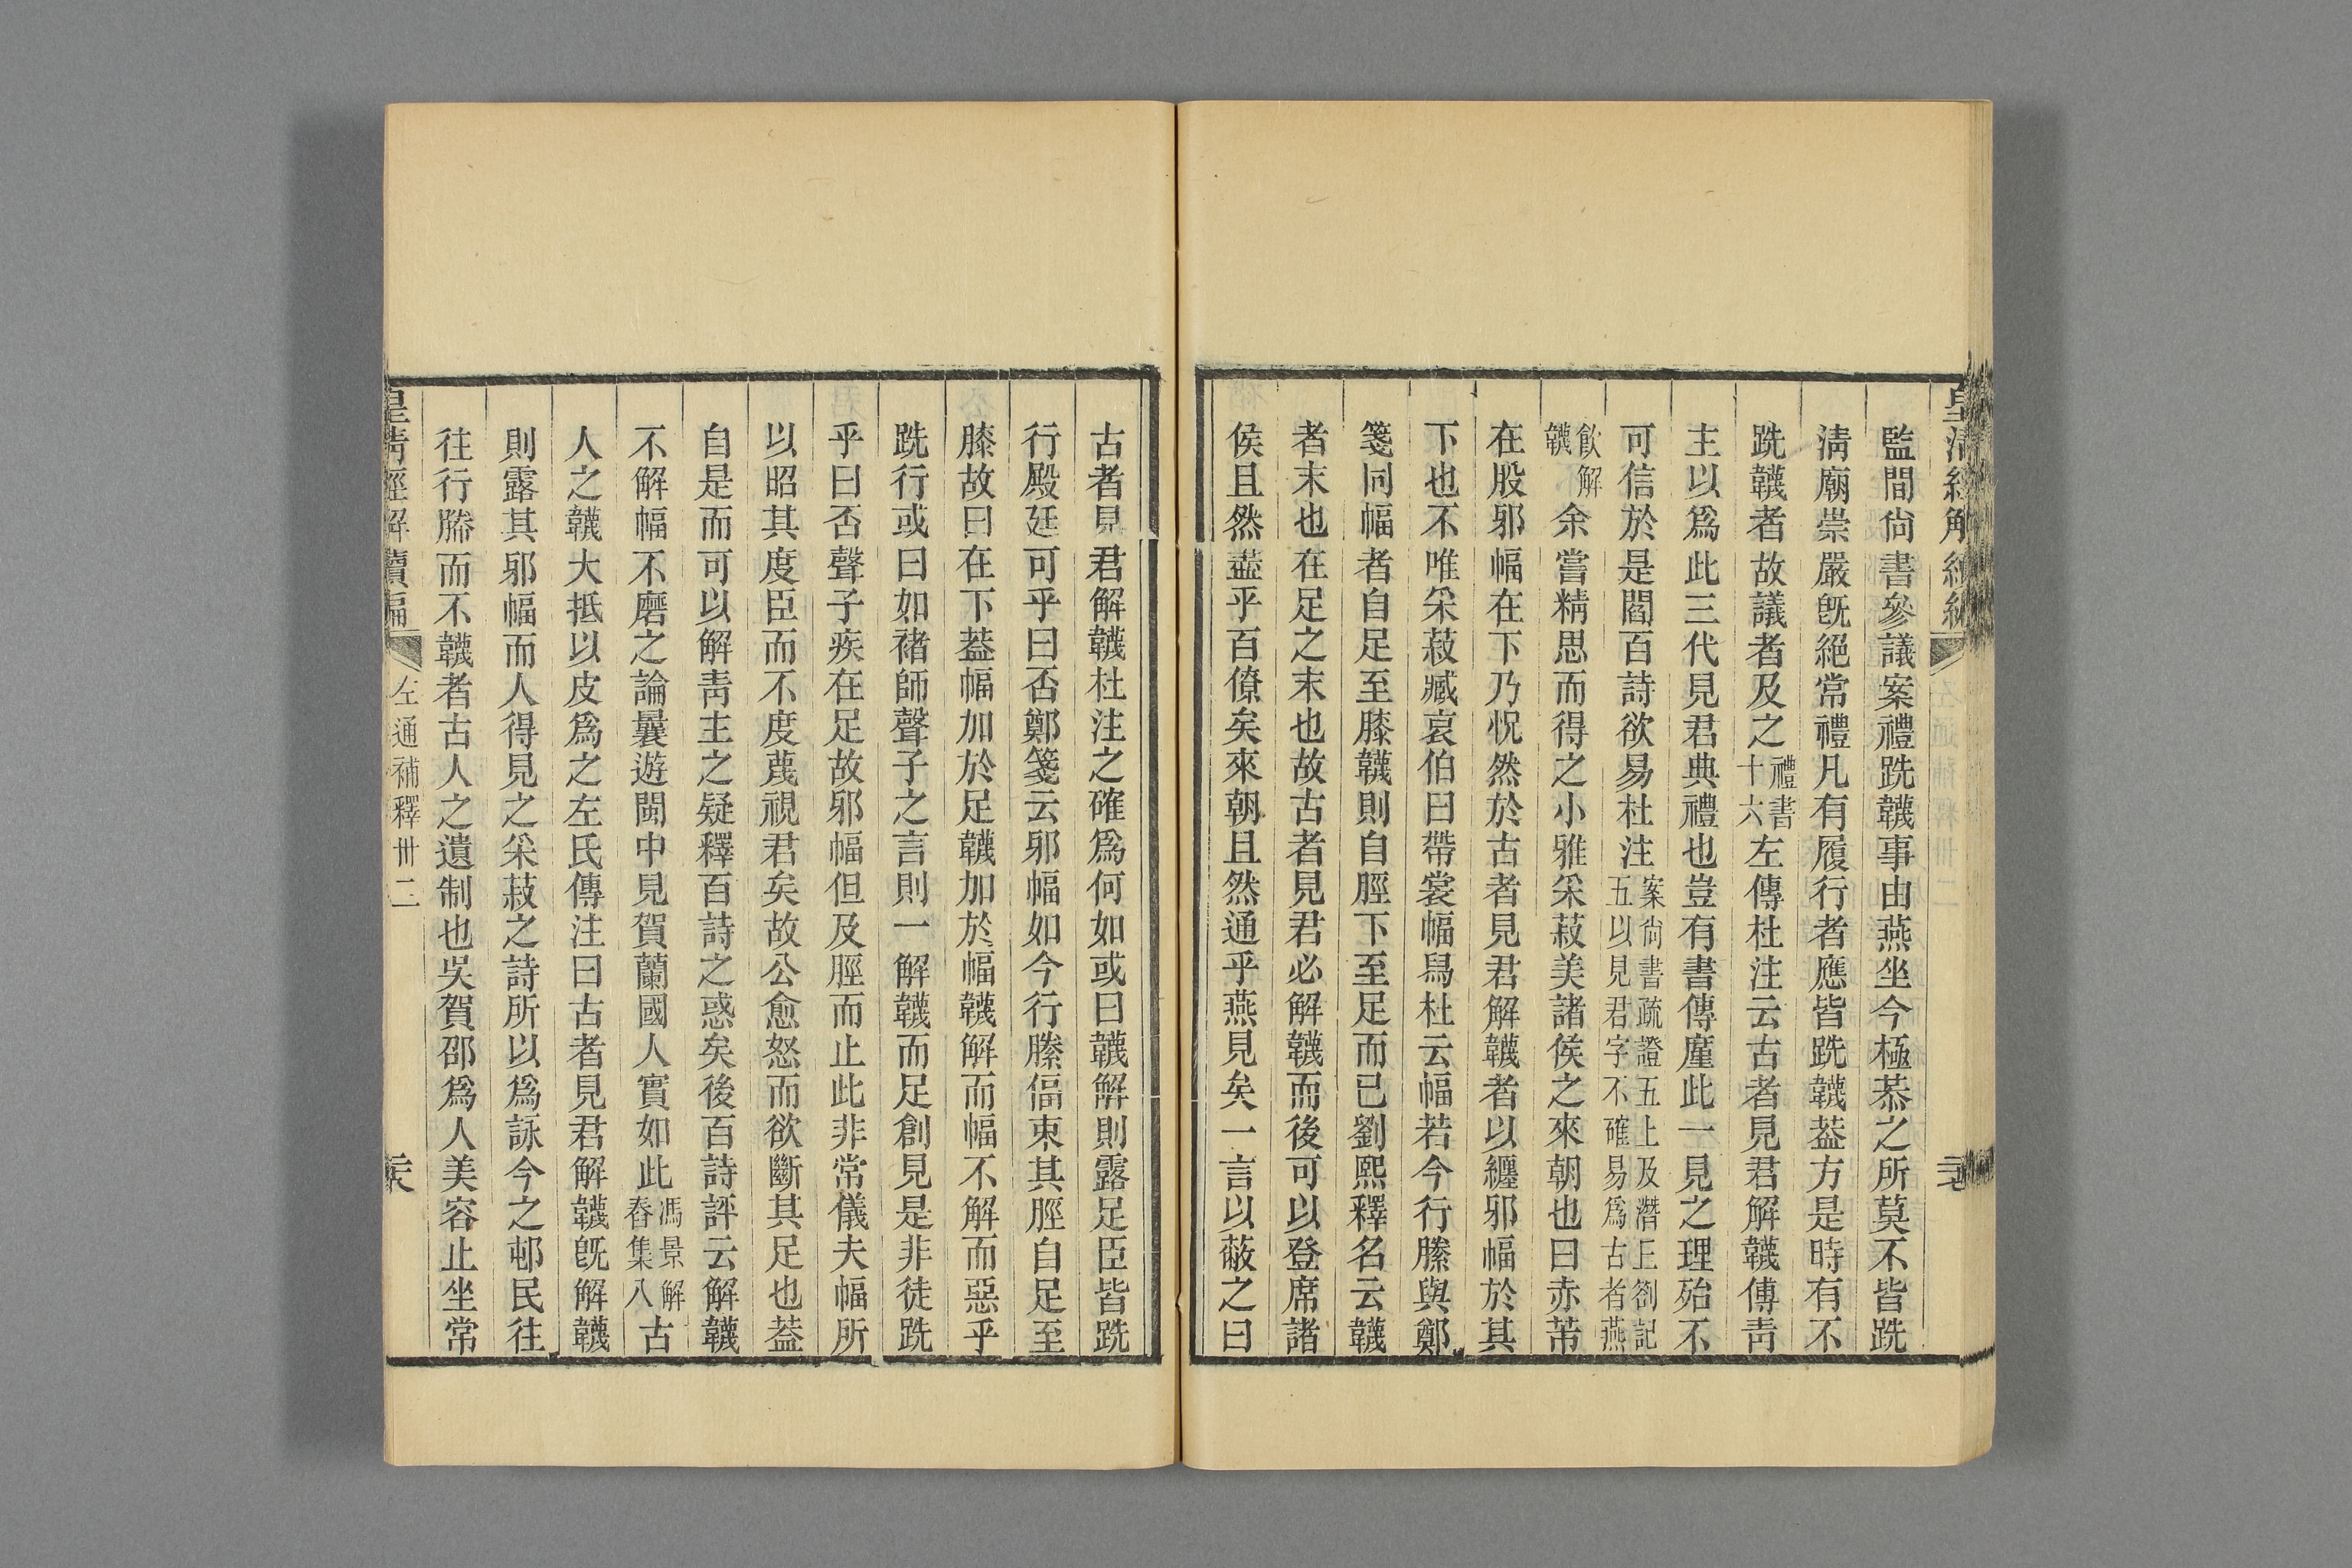 監間尙書參議案禮跣韈事由燕坐今極恭之所莫不皆跣
淸廟崇嚴旣絕常禮凡有履行者應皆跣韈葢方是時有不
跣韈者故議者及之禮書十六左傳杜注云古者見君解韈傅靑
主以爲此三代見君典禮也豈有書傳廑此一見之理殆不
可信於是閻百詩欲易杜注案尙書疏證五上及潛丘劄記五以見君字不確易爲古者燕
飮解韈余嘗精思而得之小雅采菽美諸侯之來朝也曰赤芾
在股邪幅在下乃怳然於古者見君解韈者以纏邪幅於其
下也不唯采菽臧哀伯曰帶裳幅舄杜云幅若今行縢與鄭
箋同幅者自足至膝韈則自脛下至足而已劉熙釋名云韈
者末也在足之末也故古者見君必解韈而後可以登席諸
侯且然葢乎百僚矣來朝且然通乎燕見矣一言以蔽之曰
古者見君解韈杜注之確爲何如或曰韈解則露足臣皆跣
行殿廷可乎曰否鄭箋云邪幅如今行縢偪束其脛自足至
膝故曰在下葢幅加於足韈加於幅韈解而幅不解而惡乎
跣行或曰如褚師聲子之言則一解韈而足創見是非徒跣
乎曰否聲子疾在足故邪幅但及脛而止此非常儀夫幅所
以昭其度臣而不度蔑視君矣故公愈怒而欲斷其足也葢
自是而可以解靑主之疑釋百詩之惑矣後百詩評云解韈
不解幅不磨之論曩遊閩中見賀蘭國人實如此馮景解舂集八古
人之韈大抵以皮爲之左氏傳注曰古者見君解韈旣解韈
則露其邪幅而人得見之采菽之詩所以爲詠今之邨民往
往行縢而不韈者古人之遺制也吳賀邵爲人美容止坐常
皇淸經解續編 左通補釋卅二 三六